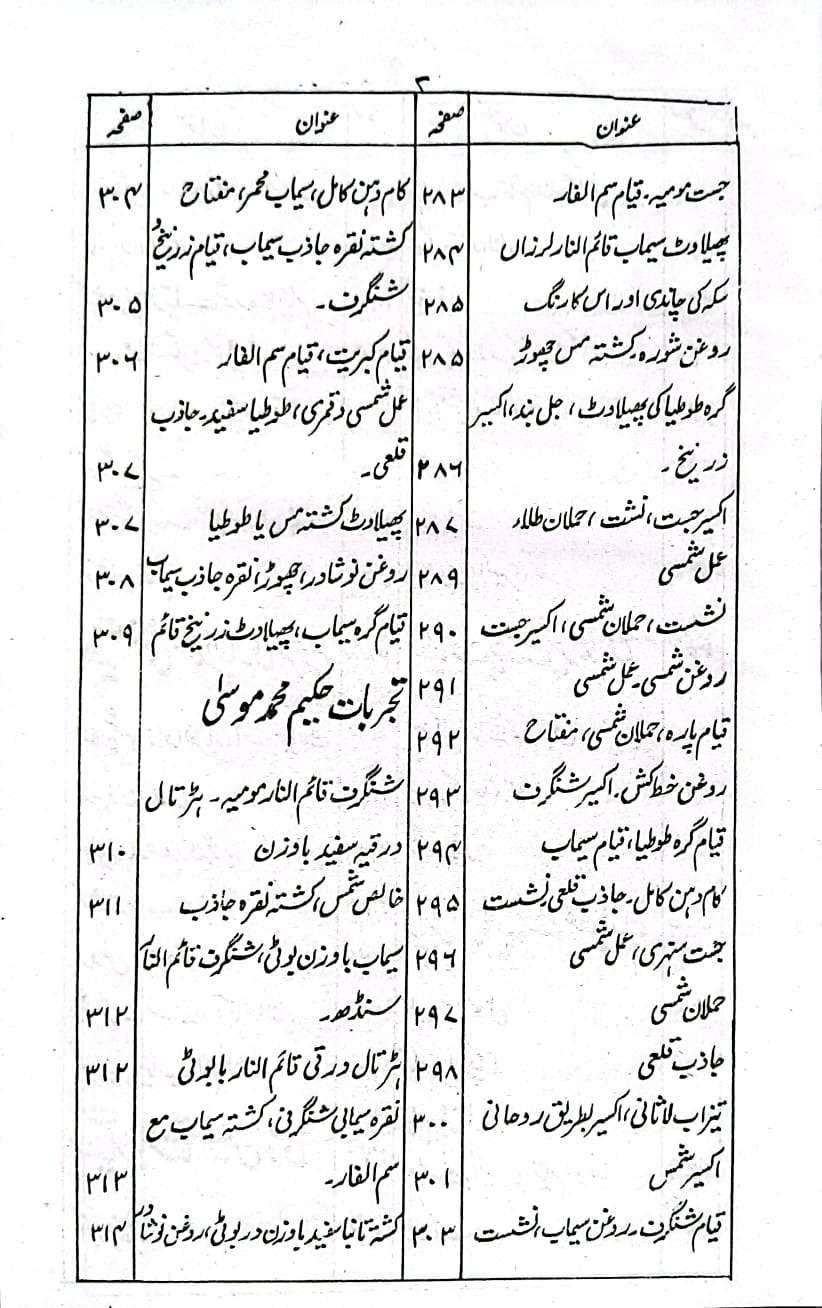 ۲
عنوان صفحہ
جست مومیہ۔ قیام سم الفار ۲۸۳
پھیلاوٹ سیماب قائم النار لرزاں ۲۸۴
سکہ کی چاندی اور اس کا رنگ ۲۸۵
روغن شورہ۔ کشتہ مس چھوڑ ۲۸۵
گرہ طوطیا کی پھیلاوٹ، جل بند، اکسیر
زرنیخ۔ ۲۸۶
اکسیر جست، نشت، حملان طلاء ۲۸۷
عمل شمسی ۲۸۹
نشست، حملان شمسی، اکسیر جست ۲۹۰
روغن شمسی۔ عمل شمسی ۲۹۱
قیام پارہ، حملان شمسی، مفتاح ۲۹۲
روغن خط کش۔ اکسیر شنگرف ۲۹۳
قیام گرہ طوطیا، قیام سیماب ۲۹۴
کام دہن کامل۔ جاذب قلعی نشست ۲۹۵
جست سنہری، عمل شمسی ۲۹۶
حملان شمسی ۲۹۷
جاذب قلعی ۲۹۸
تیزاب لاثانی، اکسیر بطریق روحانی ۳۰۰
اکسیر شمس ۳۰۱
قیام شنگرف۔ روغن سیماب، نشست ۳۰۳
عنوان صفحہ
کام دہن کامل، سیماب محمر، مفتاح ۳۰۴
کشتہ نقرہ جاذب سیماب، قیام زرنیخ و
شنگرف۔ ۳۰۵
قیام کبریت، قیام سم الفار ۳۰۶
عمل شمسی و قمری، طوطیا سفید۔ جاذب
قلعی۔ ۳۰۷
پھیلاوٹ کشتہ مس یا طوطیا ۳۰۷
روغن نوشادر، چھوڑ، نقرہ جاذب سیماب ۳۰۸
قیام گرہ سیماب، پھیلاوٹ زرنیخ قائم ۳۰۹
تجربات حکیم محمد موسیٰ
شنگرف قائم النار مومیہ۔ ہڑتال
ورقیہ سفید باوزن ۳۱۰
خالص شمس، کشتہ نقرہ جاذب ۳۱۱
سیماب باوزن بوٹی، شنگرف قائم النار
سنڈھور ۳۱۲
ہڑتال ورقی قائم النار بابوٹی ۳۱۲
نقرہ سیمابی شنگرفی، کشتہ سیماب مع
سم الفار۔ ۳۱۳
کشتہ تانبا سفید باوزن در بوٹی، روغن نوشادر ۳۱۴